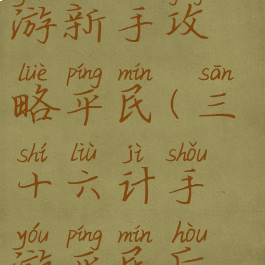 游新手攻
lüè píng mín sān
略平民(三
shí liù jì shǒu
十六计手
yóu píng mín hòu
游平民后